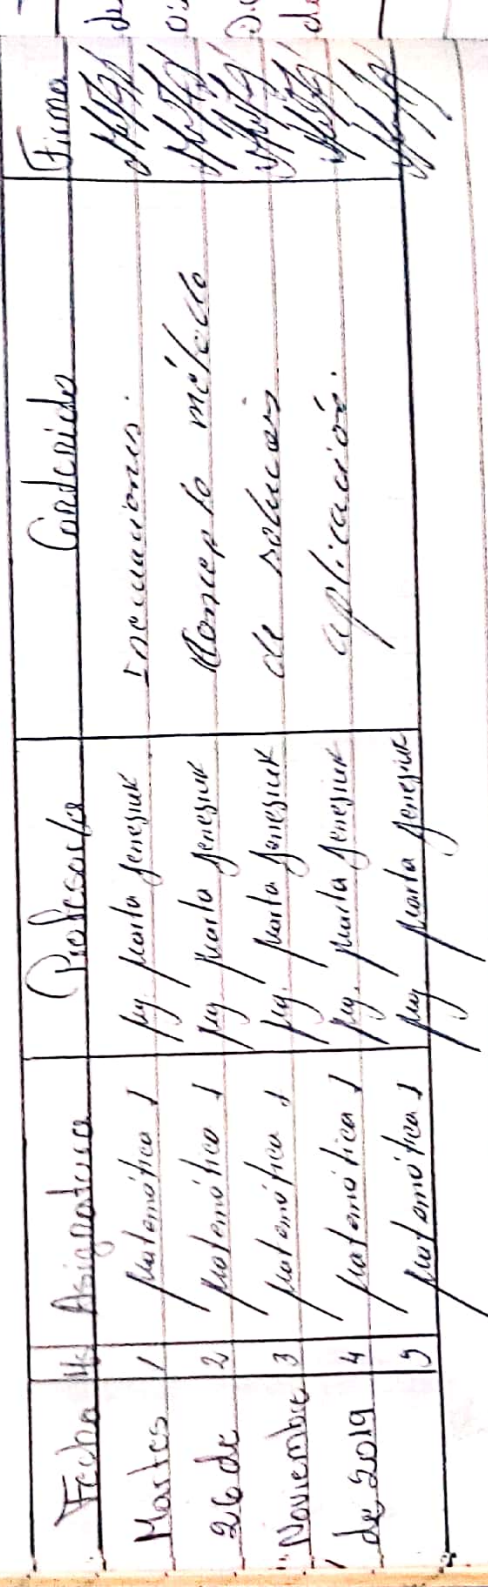 Fecha Hs Asignatura Profesor/a Contenido Firma
Martes 1 Matemática I Mg Marta Jenesiuk Inecuaciones.
26 de 2 Matemática I Mg Marta Jenesiuk Concepto método
Noviembre 3 Matemática I Mg. Marta Jenesiuk de solución
de 2019 4 Matemática I Mg. Marta Jenesiuk aplicación.
5 Matemática I Mg Marta Jenesiuk